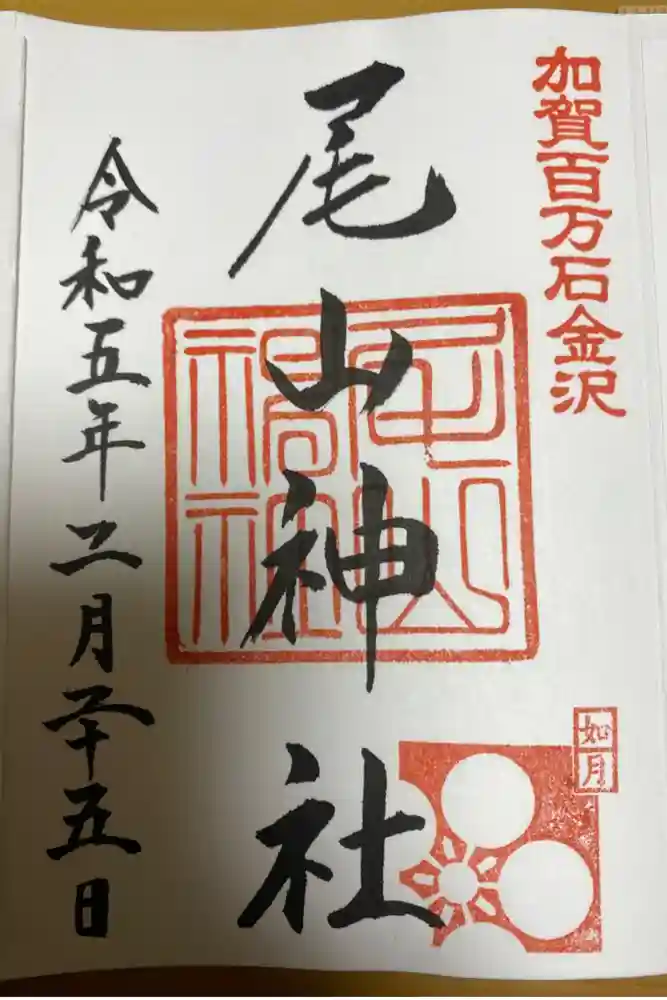 加賀百万石金沢
尾山神社
尾山神社
如月
令和五年二月二十五日